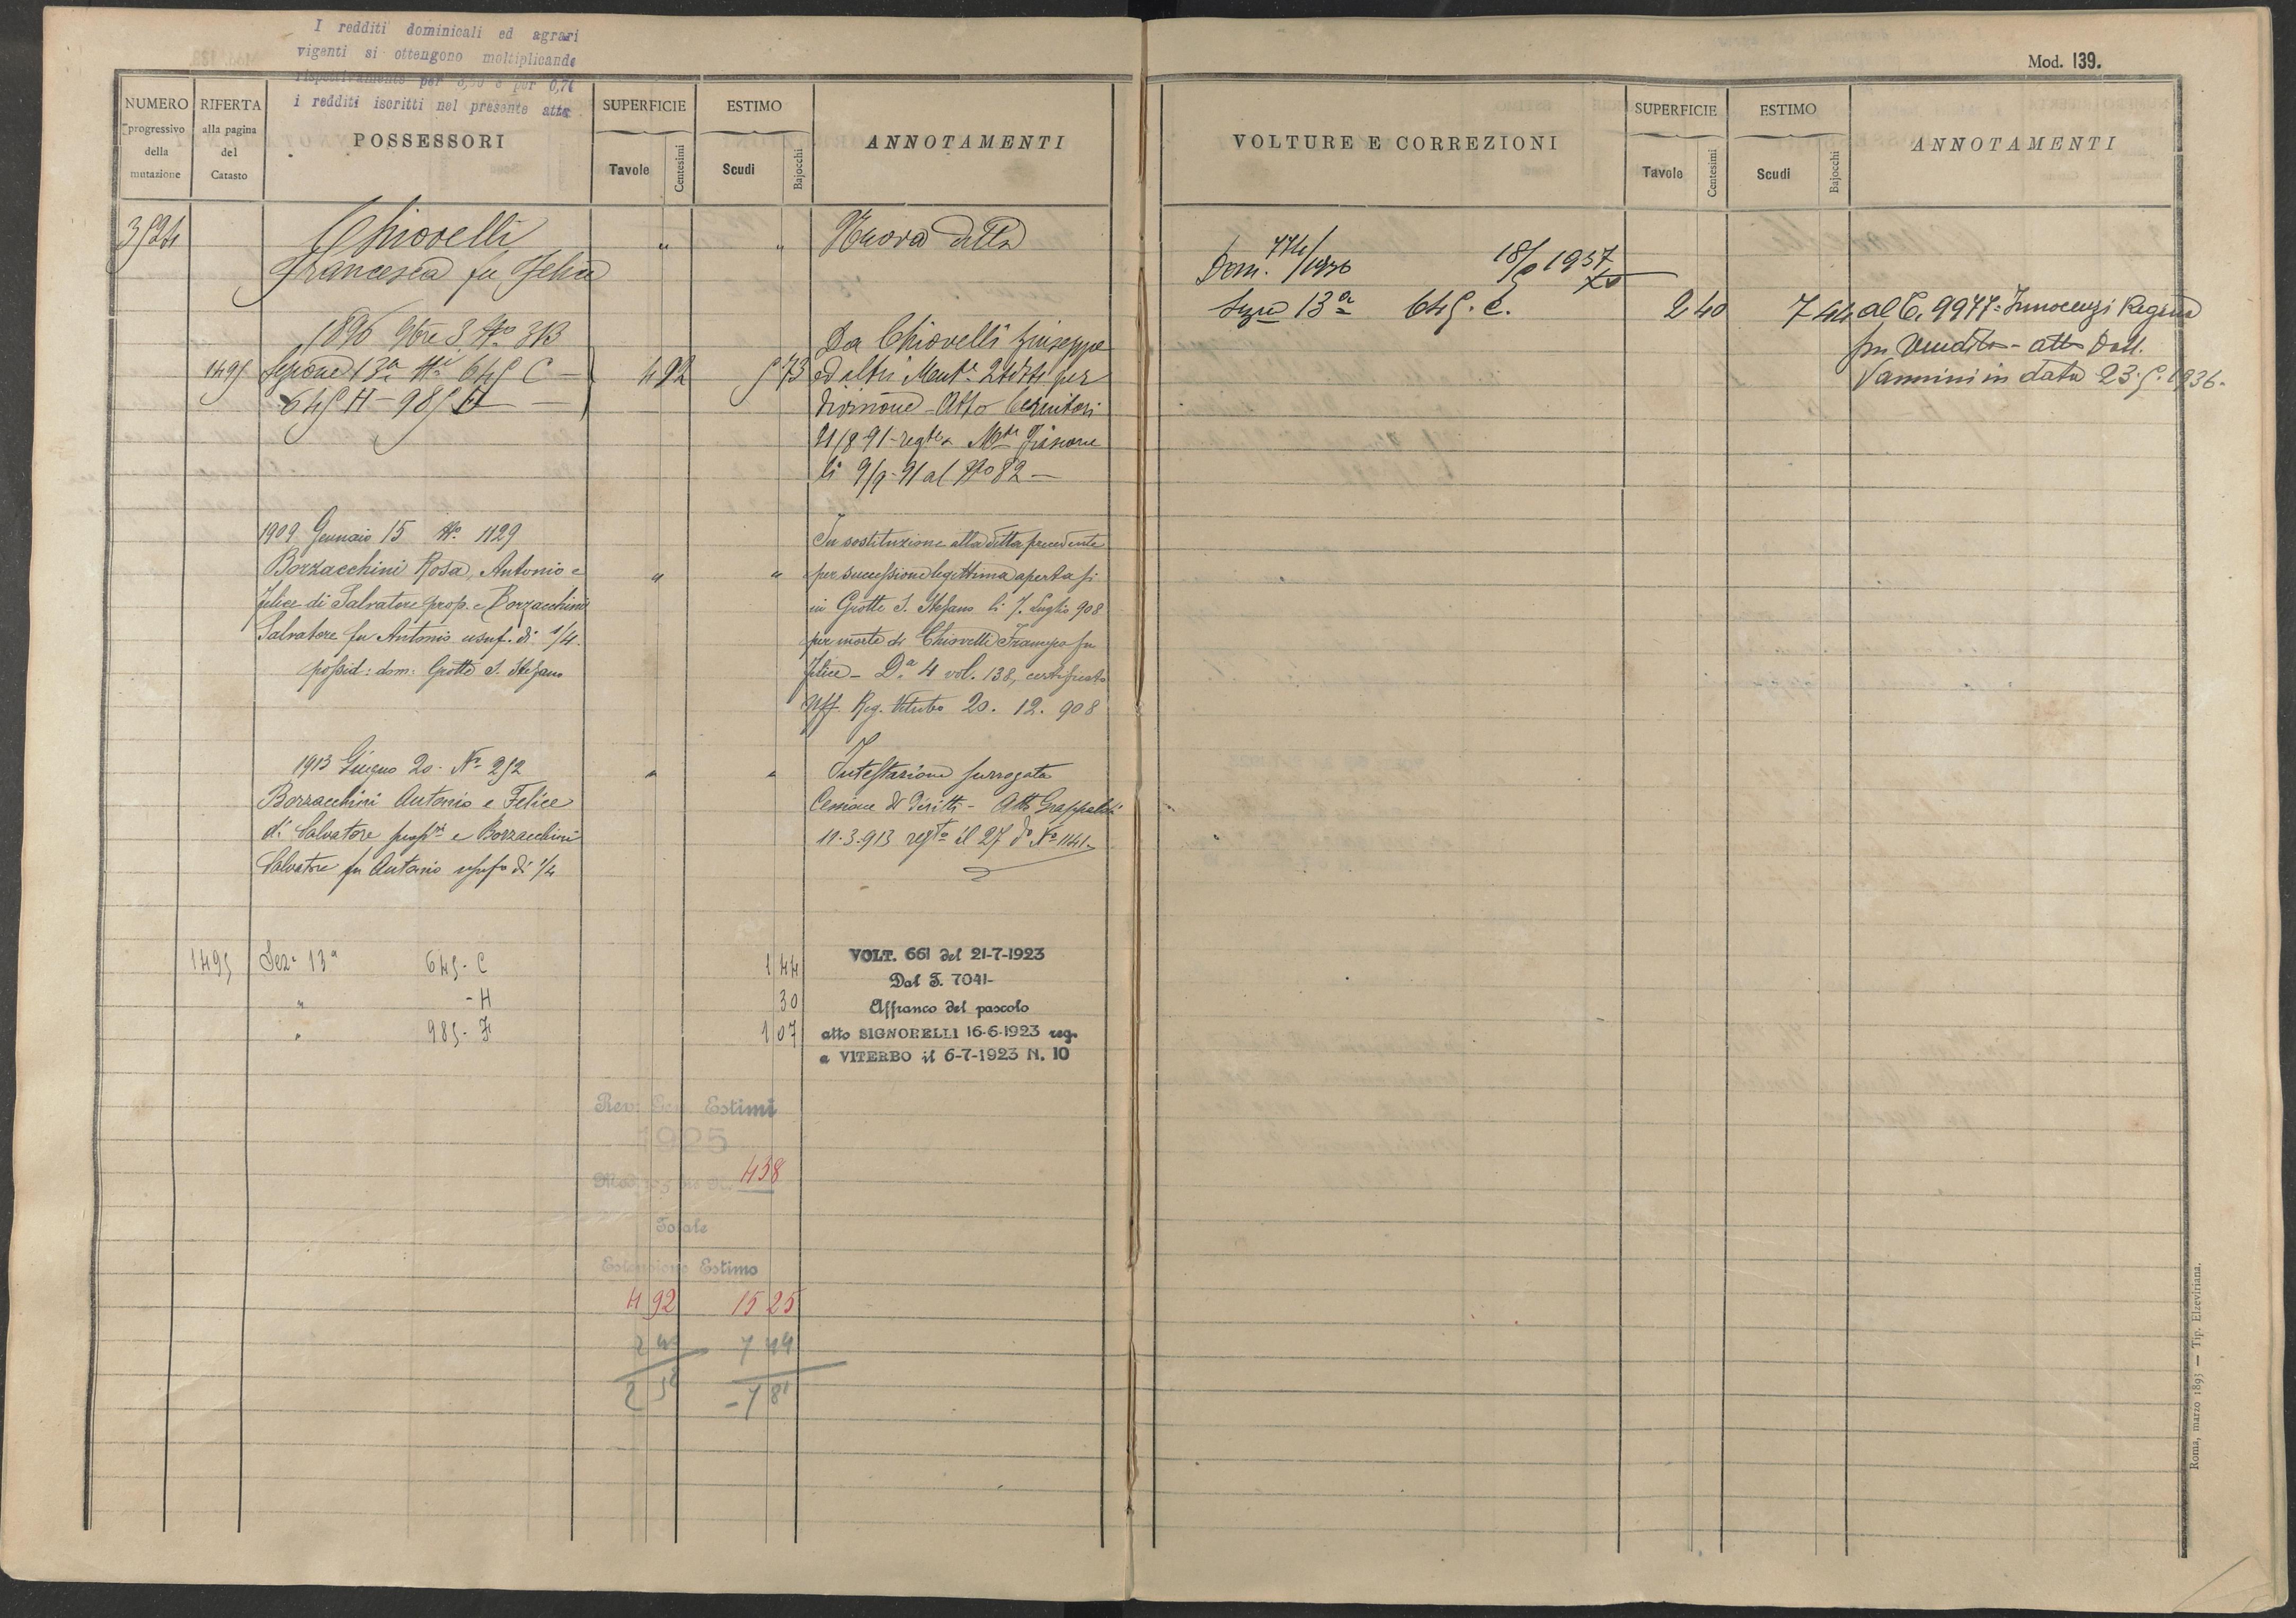 I redditi dominicali ed agrari
vigenti si ottengono moltiplicando
rispettivamente per e per 0,74
i redditi iscritti nel presente atto
Mod. 139.
NUMERO
progressivo
della
mutazione
RIFERTA
alla pagina
del
Catasto
POSSESSORI
SUPERFICIE
Tavole
Centesimi
ESTIMO
Scudi
Bajocchi
ANNOTAMENTI
3524
Chiovelli " " Nuova ditta
Francesca fu Felice
1896 9bre 3 No 313
Da Chiovelli Giuseppe
1495 Sezione 13a Ni 645 C - 4 92 5 73 ed altri per
645 H - 985
divisione - Atto
21/8 91 - regto a Mte
li 9/9 - 91 al No 82 -
1909 Gennaio 15 No 1129
Borzacchini Rosa, Antonio e
Felice di Salvatore prop. e Borzacchini
Salvatore fu Antonio usuf. di 1/4.
possid: dom: Grotte S. Stefano
" "
In sostituzione alla ditta precedente
per successione legittima apertasi
in Grotte S. Stefano li 7. Luglio 908
per morte di Chiovelli fu
Felice - Da 4 vol. 138, certificato
Uff. Reg. Viterbo 20. 12. 908
1913 Giugno 20 - No 252
Borzacchini Antonio e Felice
di Salvatore e Borzacchini
Salvatore fu Antonio di 1/4
" "
Intestazione surrogata
Cessione di diritti - Atto
11.3.913 regto il 27 do No 1141
1495 Seza 13a 645 - C 1 44
" - H 30
" 985 - F 1 07
VOLT. 661 del 21-7-1923
Dal T. 7041-
Affranco del pascolo
atto SIGNORELLI 16-6-1923 reg.
a VITERBO il 6-7-1923 N. 10
Rev: Gen. Estimi
1925
438
Totale
Estensione Estimo
4 92 15 25
2 40 7 44
2 52 - 7 81
VOLTURE E CORREZIONI
SUPERFICIE
Tavole
Centesimi
ESTIMO
Scudi
Bajocchi
ANNOTAMENTI
Dom. 774/1936 1937
13a 645. C. 2 40 7 44 al C. 9977 - Innocenzi Regina
per Vendita - atto Dott.
Vannini in data 23.5.1936.
Roma, marzo 1895 — Tip. Elzeviriana.